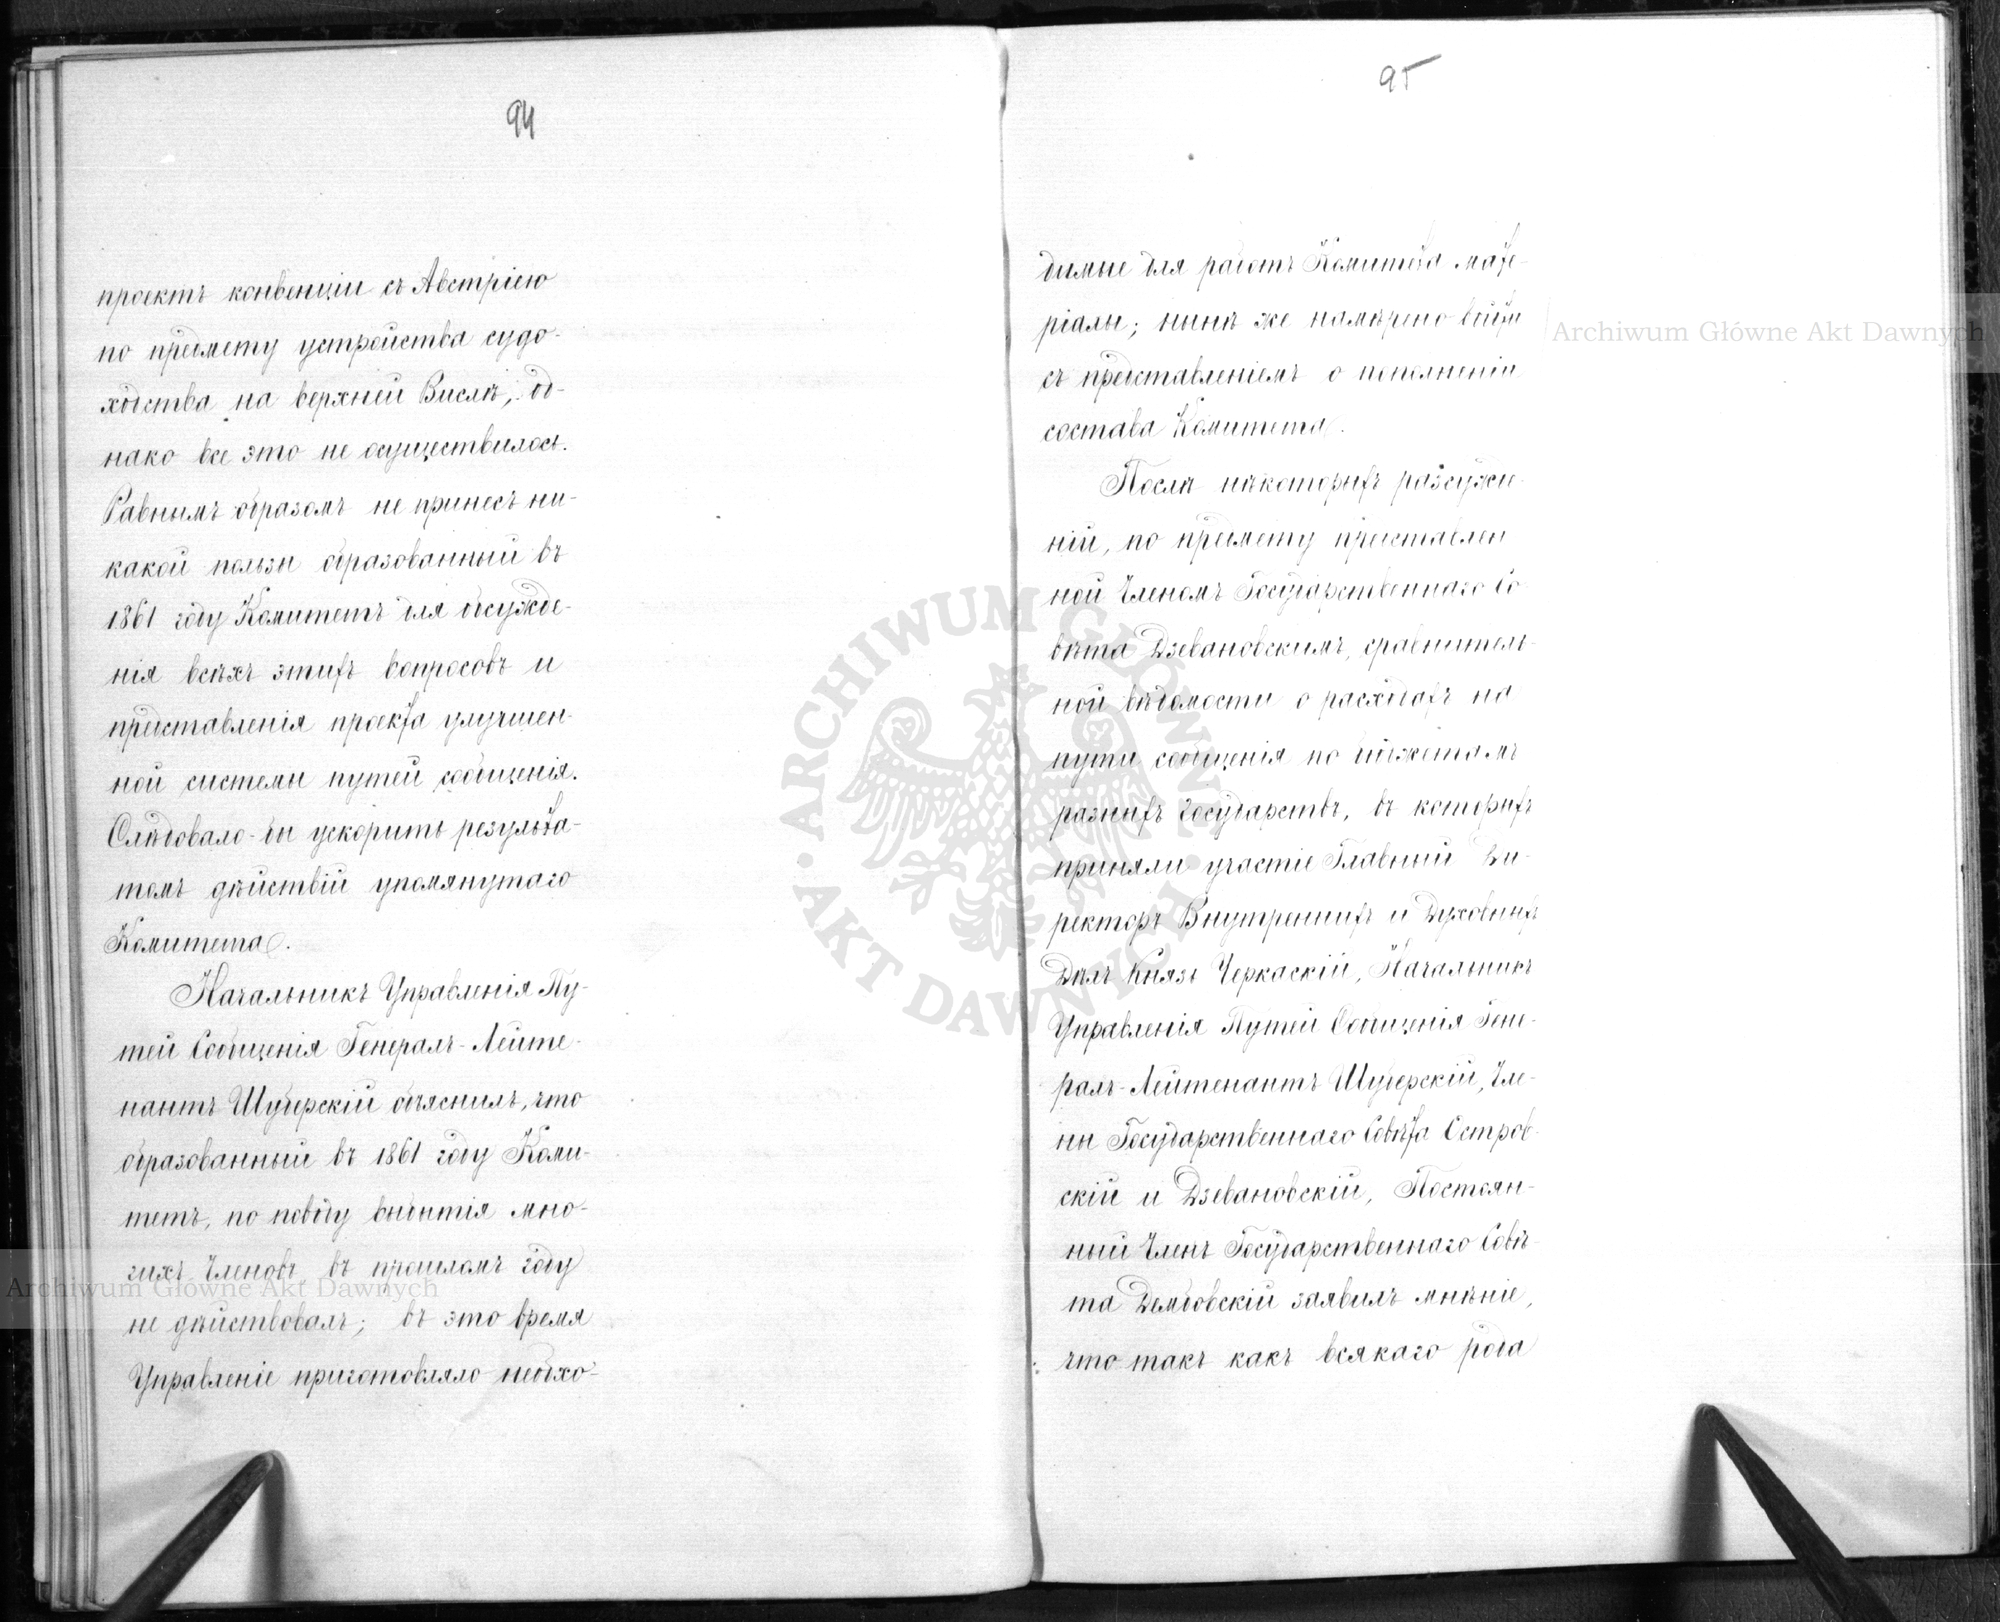 94
проектъ конвенціи съ Австріею
по предмету устройства судо-
ходства на верхней Вислѣ, од-
нако все это не осуществилось.
Равнымъ образомъ не принесъ ни-
какой пользы образованный въ
1861 году Комитетъ для обсужде-
нія всѣхъ этихъ вопросовъ и
представленія проекта улучшен-
ной системы путей сообщенія.
Слѣдовало-бы ускорить результа-
томъ дѣйствій упомянутаго
Комитета.
Начальникъ Управленія Пу-
тей Сообщенія Генералъ-Лейте-
нантъ Шуберскій объяснилъ, что
образованный въ 1861 году Коми-
тетъ, по поводу выбытія мно-
гихъ Членовъ, въ прошломъ году
не дѣйствовалъ; въ это время
Управленіе приготовляло необхо-
95
димые для работъ Комитета мате-
ріалы; нынѣ же намѣрено войти
съ представленіемъ о пополненіи
состава Комитета.
Послѣ нѣкоторыхъ разсужде-
ній, по предмету представлен
ной Членомъ Государственнаго Со
вѣта Дзевановскимъ, сравнитель-
ной вѣдомости о расходахъ на
пути сообщенія по бюджетамъ
разныхъ Государствъ, въ которыхъ
приняли участіе Главный Ди-
ректоръ Внутреннихъ и Духовныхъ
Дѣлъ Князь Черкаскій, Начальникъ
Управленія Путей Сообщенія Гене-
ралъ-Лейтенантъ Шуберскій, Чле-
ны Государственнаго Совѣта Остров-
скій и Дзевановскій, Постоян-
ный Членъ Государственнаго Совѣ-
та Дембовскій заявилъ мнѣніе,
что такъ какъ всякаго рода
Archiwum Główne Akt Dawnych
Archiwum Główne Akt Dawnych
A · ARCHIWUM GŁÓWNE · AKT DAWNYCH ·